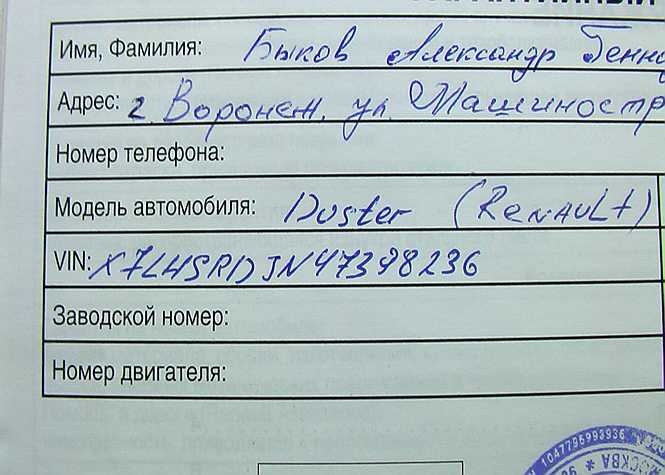 Имя, Фамилия: Быков Александр Генна
Адрес: г. Воронеж, ул. Машиностр
Номер телефона:
Модель автомобиля: Duster (RENAULT)
VIN: X7LHSRDJN47398236
Заводской номер:
Номер двигателя:
1047796993936
МОСКВА *